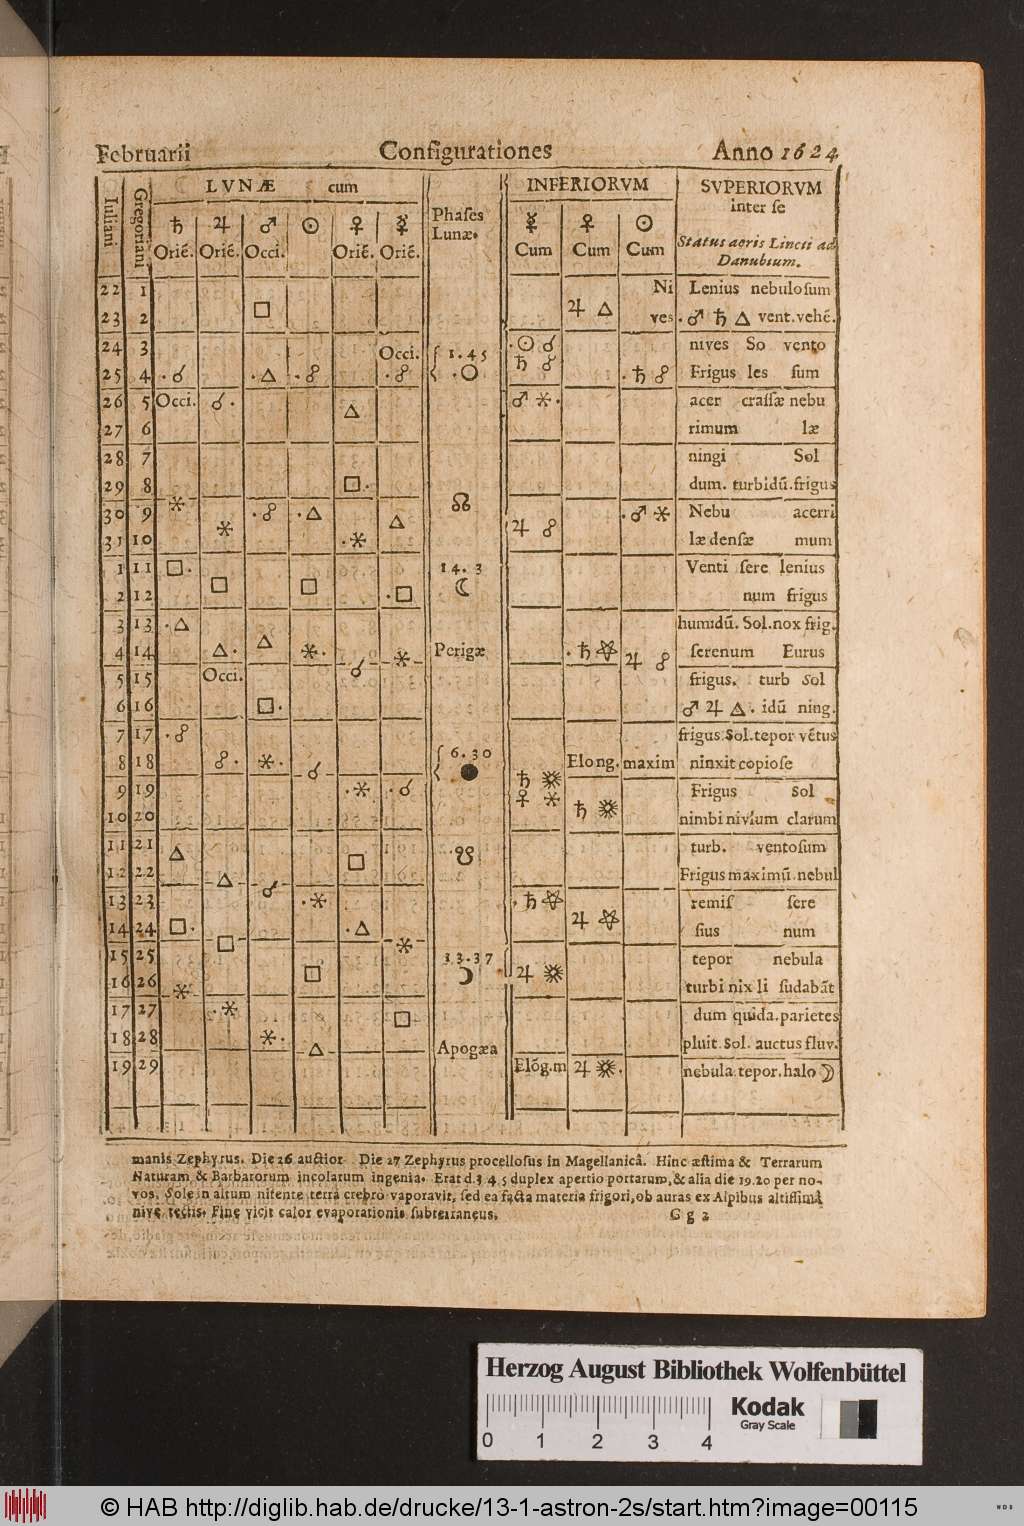 Februarii Configurationes Anno 1624
Iuliani Gregoriani LVNÆ cum Phases Lunæ. INFERIORVM SVPERIORVM
inter se
♄ ♃ ♂ ☉ ♀ ☿ ☿ ♀ ☉
Orié. Orié. Occi. Orié. Orié. Cum Cum Cum Status aeris Lincii ad
Danubium.
22 1 □ ♃ △ Ni Lenius nebulosum
23 2 ves .♂ ♄ △ vent.vehé.
24 3 Occi. 1.45 .☉ ☌ nives So vento
25 4 .☌ .△ .☍ .☍ .○ ♄ ☍ .♄ ☍ Frigus les sum
26 5 Occi. ☌. △ ♂ ⚹. acer crassæ nebu
27 6 rimum læ
28 7 ningi Sol
29 8 ⚹ □. ☊ dum. turbidū.frigus
30 9 ⚹ .☍ .△ △ ♃ ☍ .♂ ⚹ Nebu acerri
31 10 .⚹ læ densæ mum
1 11 □. □ □ 14.3 Venti sere lenius
2 12 .□ ☾ num frigus
3 13 .△ △ humidū. Sol.nox frig.
4 14 △. ⚹. ☌ ⚹ Perigæ .♄ ♃ ☍ serenum Eurus
5 15 Occi. frigus. turb Sol
6 16 □. ♂ ♃ △. idū ning.
7 17 .☍ frigus.Sol.tepor vētus
8 18 ☍. ⚹. ☌ 6.30 ● ♄ Elong. maxim ninxit copiose
9 19 .⚹ .☌ ♀ ⚹ ♄ Frigus Sol
10 20 nimbi nivium clarum
11 21 △ □ ☋ turb. ventosum
12 22 △ ☌ Frigus maximū.nebul
13 23 .⚹ .♄ remis sere
14 24 □. □ .△ ⚹ ♃ sius num
15 25 □ 13.37 ♃ tepor nebula
16 26 ⚹ ☽ turbi nix li sudabāt
17 27 .⚹ □ dum quida.parietes
18 28 ⚹. △ Apogæa pluit.Sol. auctus fluv.
19 29 Elōg.m ♃ nebula.tepor.halo ☽
manis Zephyrus. Die 26 auctior Die 27 Zephyrus procellosus in Magellanicâ. Hinc æstima & Terrarum
Naturam & Barbarorum incolarum ingenia. Erat d.3 4 5 duplex apertio portarum,& alia die 19.20 per no-
vos. Sole in altum nitente terra crebrò vaporavit, sed ea facta materia frigori,ob auras ex Alpibus altissimâ
nive tectis. Fine vicit calor evaporationis subterraneus.
G g 2
Herzog August Bibliothek Wolfenbüttel
Kodak
Gray Scale
0 1 2 3 4
© HAB http://diglib.hab.de/drucke/13-1-astron-2s/start.htm?image=00115
WDB